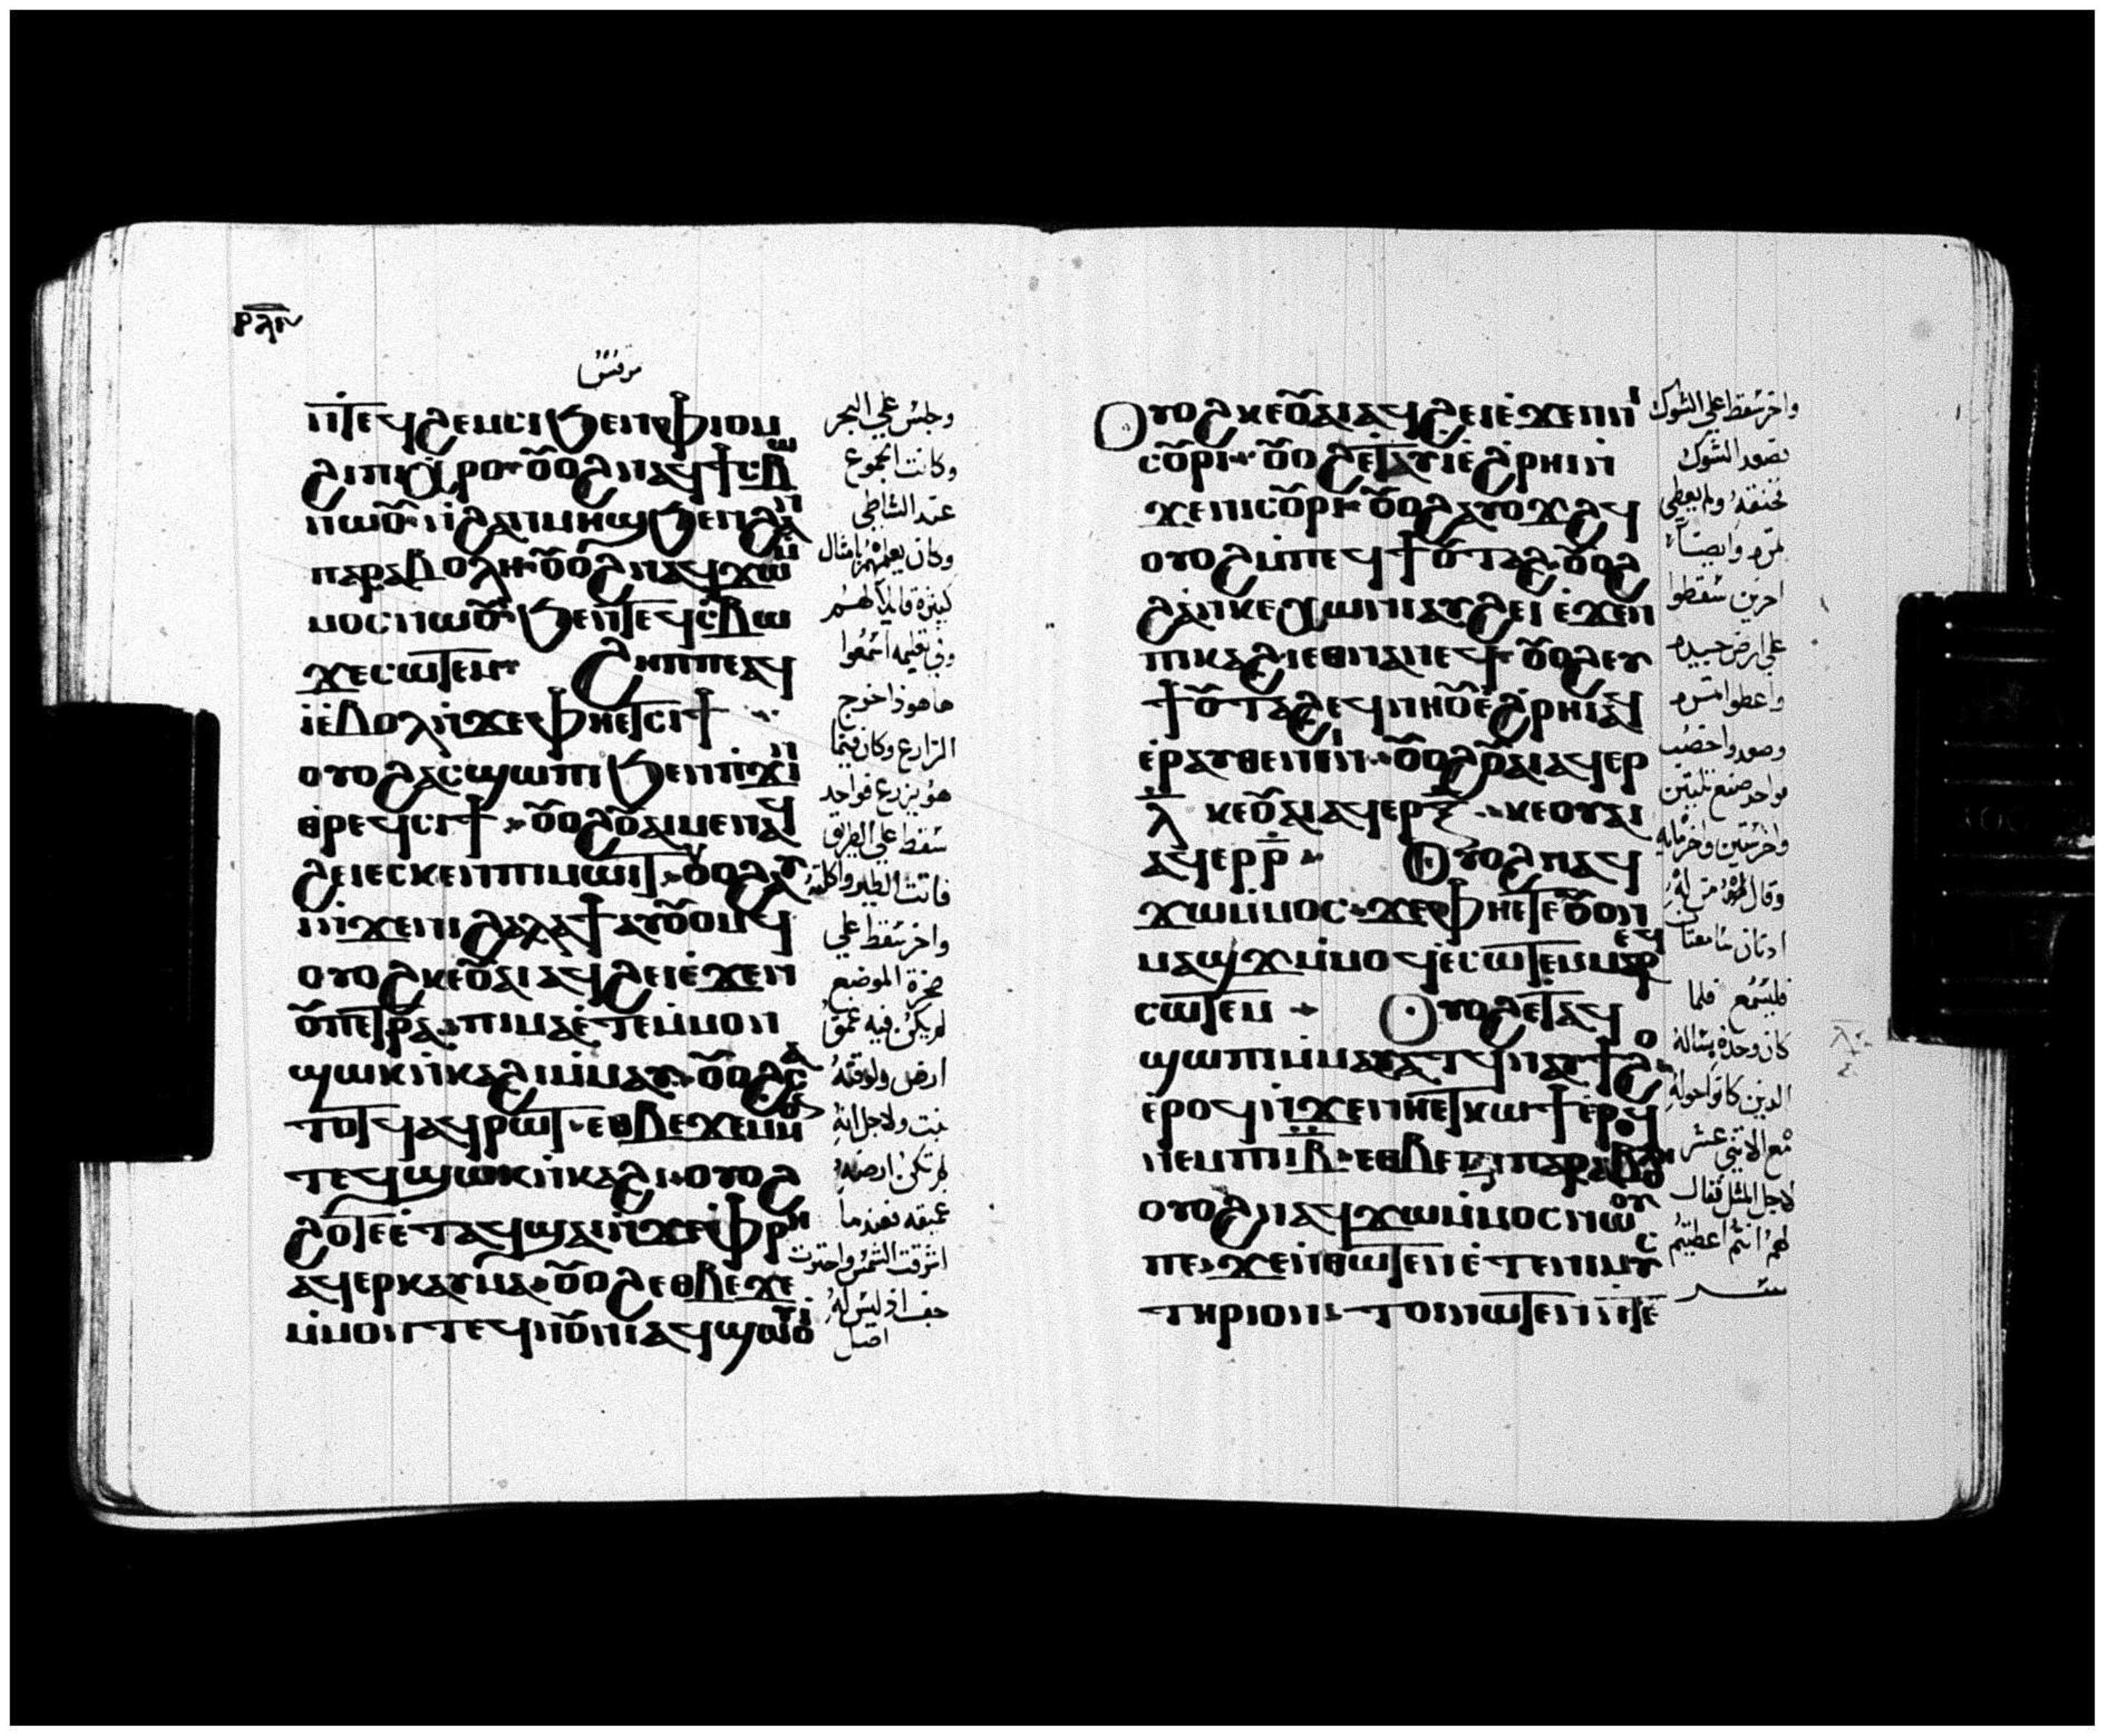 ⲣⲗⲅ
مرقس
ⲛⲧⲉϥϩⲉⲙⲥⲓ ϧⲉⲛ ⲫⲓⲟⲙ
ϩⲓ ⲡⲓⲭⲣⲟ ⲟⲩⲟϩ ⲛⲁϥϯⲥⲃⲱ
ⲛⲱⲟⲩ ⲛϩⲁⲛⲙⲏϣ ϧⲉⲛ ϩⲁⲛ
ⲡⲁⲣⲁⲃⲟⲗⲏ ⲟⲩⲟϩ ⲛⲁϥϫⲱⲙ
ⲙⲟⲥ ⲛⲱⲟⲩ ϧⲉⲛ ⲧⲉϥⲥⲃⲱ
ϫⲉ ⲥⲱⲧⲉⲙ ϩⲏⲡⲡⲉ ⲁϥ
ⲓ ⲉⲃⲟⲗ ⲛϫⲉ ⲫⲏⲉⲧⲥⲓϯ
ⲟⲩⲟϩ ⲁⲥϣⲱⲡⲓ ϧⲉⲛ ⲡϫⲓⲛ
ⲑⲣⲉϥⲥⲓϯ ⲟⲩⲟϩ ⲟⲩⲁⲓ ⲙⲉⲛ ⲁϥ
ϩⲉⲓ ⲉⲥⲕⲉⲛ ⲡⲓⲙⲱⲓⲧ ⲟⲩⲟϩ ⲁⲩ
ⲓ ⲛϫⲉ ⲛⲓϩⲁⲗⲁϯ ⲁⲩⲟⲩⲟⲙϥ
ⲟⲩⲟϩ ⲕⲉⲟⲩⲁⲓ ⲁϥϩⲉⲓ ⲉϫⲉⲛ
ⲟⲩⲡⲉⲧⲣⲁ ⲡⲓⲙⲁ ⲉⲧⲉ ⲙⲙⲟⲛ
ϣⲱⲕ ⲛⲕⲁϩⲓ ⲙⲙⲁⲩ ⲟⲩⲟϩ ⲥⲁ
ⲧⲟⲧϥ ⲁϥⲣⲱⲧ ⲉⲑⲃⲉ ϫⲉ ⲙⲙⲟⲛ
ⲧⲉϥ ϣⲱⲕ ⲛⲕⲁϩⲓ ⲟⲩⲟϩ
ϩⲟⲧⲉ ⲉⲧⲁϥϣⲁⲓ ⲛϫⲉ ⲫⲣⲏ
ⲁϥⲉⲣⲕⲁⲩⲙⲁ ⲟⲩⲟϩ ⲉⲑⲃⲉ ϫⲉ
ⲙⲙⲟⲛⲧⲉϥ ⲛⲟⲩⲛⲓ ⲁϥϣⲱⲟⲩⲓ
وجلس علي البحر
وكانت الجموع
عند الشاطي
وكان يعلمهم بامثال
كثيرة قايلا لهم
وفي تعليمه اسمعوا
هاهوذا خرج
الزارع وكان فيما
هو يزرع فواحد
سقط علي الطريق
فاتت الطير واكلته
واخر سقط علي
صخرة الموضع
لم يكن فيه عمق
ارض ولوقته
نبت ولاجل انه
لم تكن ارضه
عميقه فعندما
اشرقت الشمس واحترق
جف اذ ليس له
اصل
ⲟⲩⲟϩ ⲕⲉⲟⲩⲁⲓ ⲁϥϩⲉⲓ ⲉϫⲉⲛ ⲛⲓ
ⲥⲟⲩⲣⲓ ⲟⲩⲟϩ ⲉⲧⲁⲩⲓ ⲉϩⲣⲏⲓ ⲛ
ϫⲉ ⲛⲓⲥⲟⲩⲣⲓ ⲟⲩⲟϩ ⲁⲩⲟϫϩϥ
ⲟⲩⲟϩ ⲙⲡⲉϥϯ ⲟⲩⲧⲁϩ ⲟⲩⲟϩ
ϩⲁⲛⲕⲉⲭⲱⲟⲩⲛⲓ ⲁⲩϩⲉⲓ ⲉϫⲉⲛ
ⲡⲓⲕⲁϩⲓ ⲉⲑⲛⲁⲛⲉϥ ⲟⲩⲟϩ ⲉⲩ
ϯ ⲟⲩⲧⲁϩ ⲉϥⲛⲏⲟⲩ ⲉϩⲣⲏⲓ ⲁϥ
ⲉⲣⲁⲩⲑⲉⲛⲓⲛ ⲟⲩⲟϩ ⲟⲩⲁⲓ ⲁϥⲉⲣ
ⲗ ⲕⲉⲟⲩⲁⲓ ⲁϥⲉⲣ ⲝ ⲕⲉⲟⲩⲁⲓ
ⲁϥⲉⲣ ⲣ ⲟⲩⲟϩ ⲛⲁϥ
ϫⲱⲙⲙⲟⲥ ϫⲉ ⲫⲏⲉⲧⲉ ⲟⲩⲟⲛ
ⲙⲁϣϫ ⲙⲙⲟϥ ⲉⲥⲱⲧⲉⲙ ⲙⲁⲣⲉϥ
ⲥⲱⲧⲉⲙ ⲟⲩⲟϩ ⲉⲧⲁϥ
ϣⲱⲡⲓ ⲙⲙⲁⲩⲁⲧϥ ⲛⲁⲩϯϩⲟ
ⲉⲣⲟϥ ⲛϫⲉ ⲛⲏⲉⲧⲕⲱϯ ⲉⲣⲟϥ
ⲛⲉⲙ ⲡⲓⲓⲃ ⲉⲑⲃⲉ ⲛⲓⲡⲁⲣⲁⲃⲟⲗⲏ
ⲟⲩⲟϩ ⲛⲁϥϫⲱⲙⲙⲟⲥ ⲛⲱⲟⲩ
ⲡⲉ ϫⲉ ⲛⲑⲱⲧⲉⲛ ⲉⲧⲉ ⲡⲓⲙⲩⲥ
ⲧⲏⲣⲓⲟⲛ ⲧⲟⲓ ⲛⲱⲧⲉⲛ ⲛⲧⲉ
واخر سقط علي الشوك
فصعد الشوك
فخنقه ولم يعطي
ثمره وايضا
اخرين سقطوا
علي ارض جيده
واعطوا اثمره
وصعد واخصب
فواحد صنع ثلثين
واخر ستين واخر مايه
وقال لهم من له
ادنان سامعتان
فليسمع فلما
كان وحده يساله
الدين كانوا حوله
مع الاثني عشر
لاجل المثل فقال
لهم انتم اعطيتم
ســـر